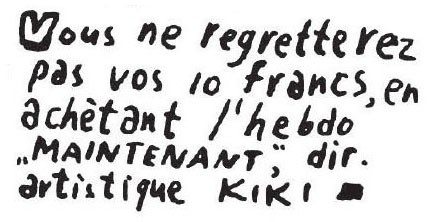 Vous ne regretterez
pas vos 10 francs, en
achètant l'hebdo
„MAINTENANT", dir.
artistique KIKI